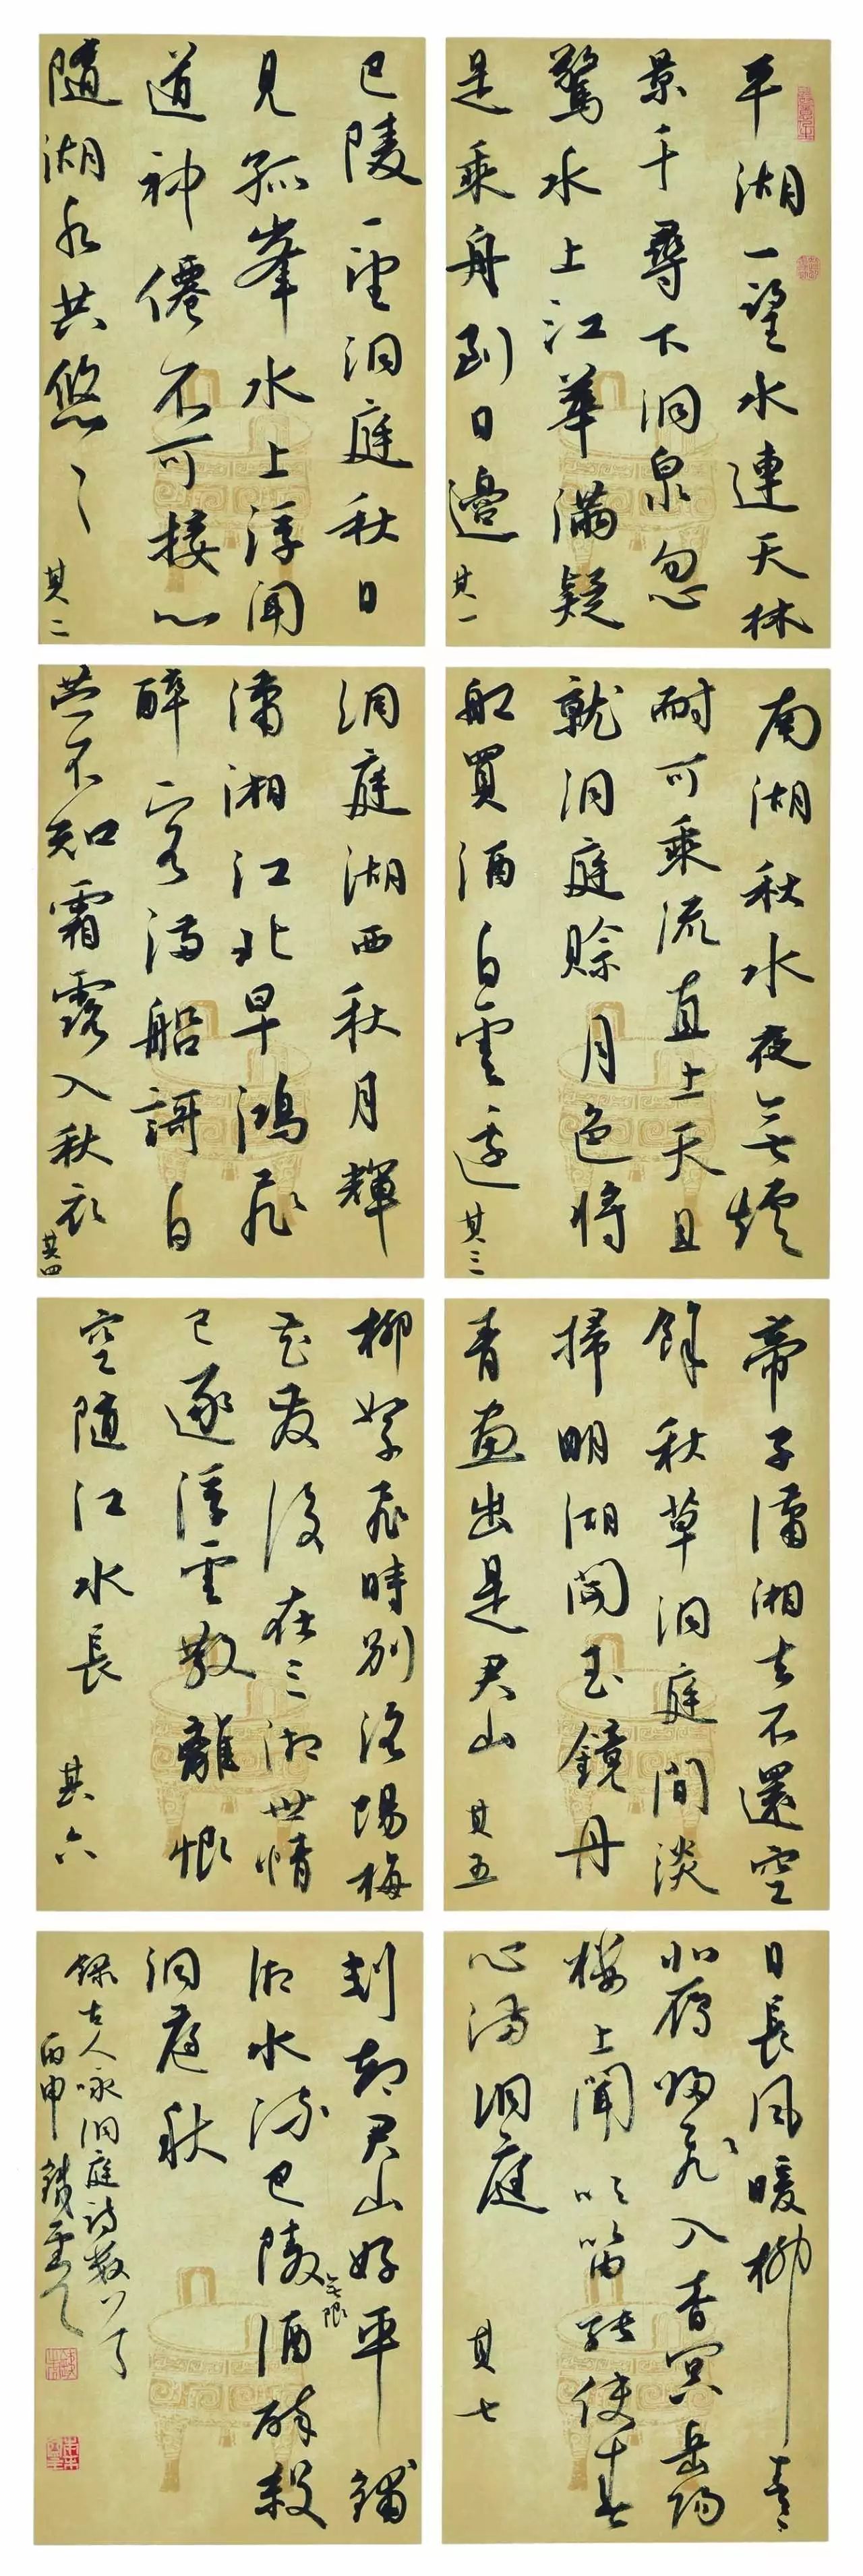 平湖一望水連天林
景千尋下洞泉忽
驚水上江華滿疑
是乘舟到日邊 其一
巴陵一望洞庭秋日
見孤峯水上浮聞
道神僊不可接心
隨湖水共悠〻 其二
南湖秋水夜無煙
耐可乘流直上天且
就洞庭賒月色將
船買酒白雲邊 其三
洞庭湖西秋月輝
瀟湘江北早鴻飛
醉客滿船謌白
苎不知霜露入秋衣 其四
帝子瀟湘去不還空
餘秋草洞庭間淡
掃明湖開玉鏡丹
青畫出是君山 其五
柳絮飛時別洛陽梅
花發後在三湘世情
已逐浮雲散離恨
空隨江水長 其六
日長風暖柳青〻
北雁歸飛入杳冥岳陽
樓上聞吹笛能使春
心滿洞庭 其七
剗却君山好平鋪
湘水流巴陵無限酒醉殺
洞庭秋
錄古人咏洞庭詩數
丙申